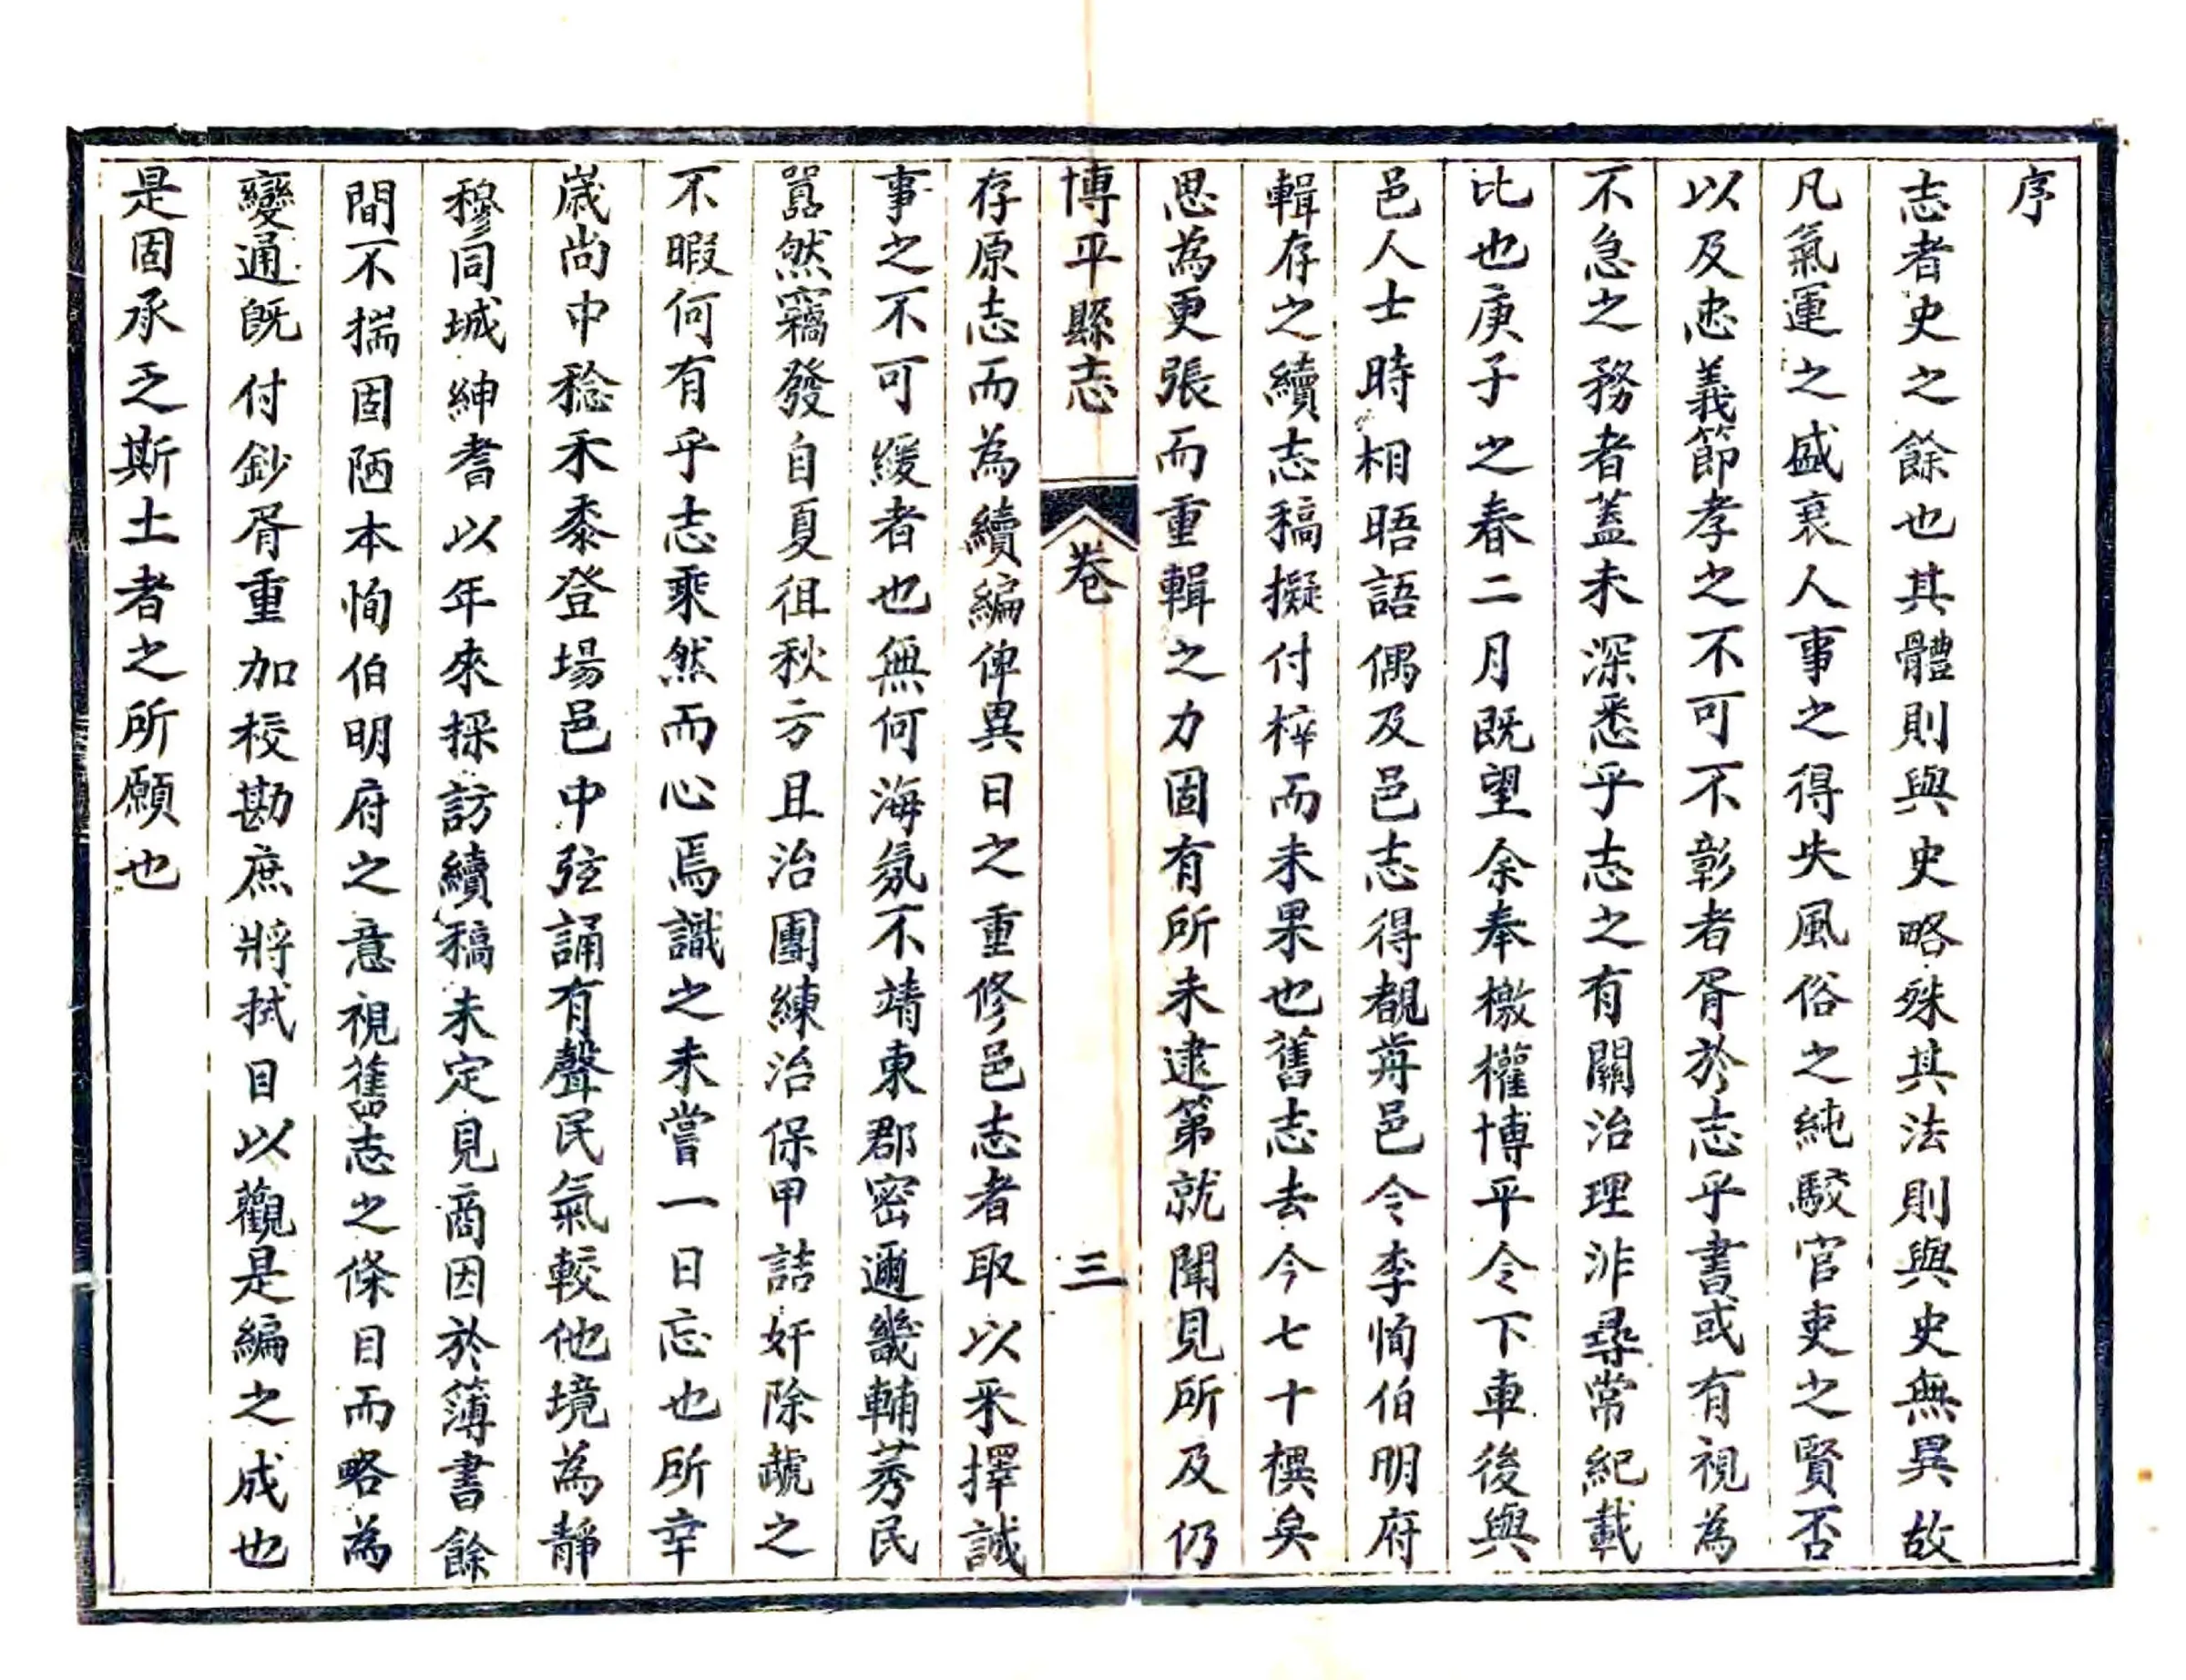 序
志者史之餘也其體則與史略殊其法則與史無異故
凡氣運之盛衰人事之得失風俗之純駁官吏之賢否
以及忠義節孝之不可不彰者胥於志乎書或有視為
不急之務者蓋未深悉乎志之有關治理洵非尋常紀載
比也庚子之春二月既望余奉檄權博平令下車後與
邑人士時相晤語偶及邑志得覩前邑令李恂伯明府
輯存之續志稿擬付梓而未果也舊志去今七十禩矣
思為更張而重輯之力固有所未逮第就聞見所及仍
博平縣志 卷 三
存原志而為續編俾異日之重修邑志者取以采擇誠
事之不可緩者也無何海氛不靖東郡密邇畿輔莠民
囂然竊發自夏徂秋方且治團練治保甲詰奸除虣之
不暇何有乎志乘然而心焉識之未嘗一日忘也所幸
歲尚中稔禾黍登場邑中弦誦有聲民氣較他境為靜
穆同城紳耆以年來採訪續稿未定見商因於簿書餘
間不揣固陋本恂伯明府之意視舊志之條目而略為
變通既付鈔胥重加校勘庶將拭目以觀是編之成也
是固承乏斯土者之所願也